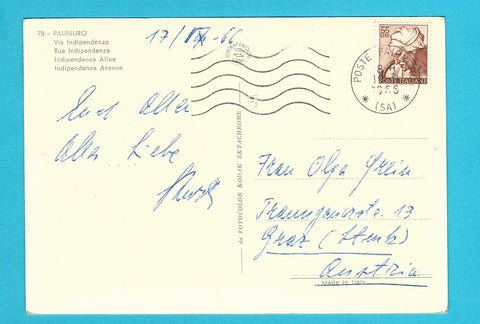 78 - PALINURO
Via Indipendenza
Rue Indipendenza
Indipendenza Allee
Indipendenza Avenue
17/VIII-66
Euch Allen
Alles Liebe
da FOTOCOLOR KODAK EKTACHROME
POSTE
1966
(SA)
POSTE ITALIANE
Frau Olga
Traungauerstr. 13
Graz (Stmk)
Austria
Made in Italy